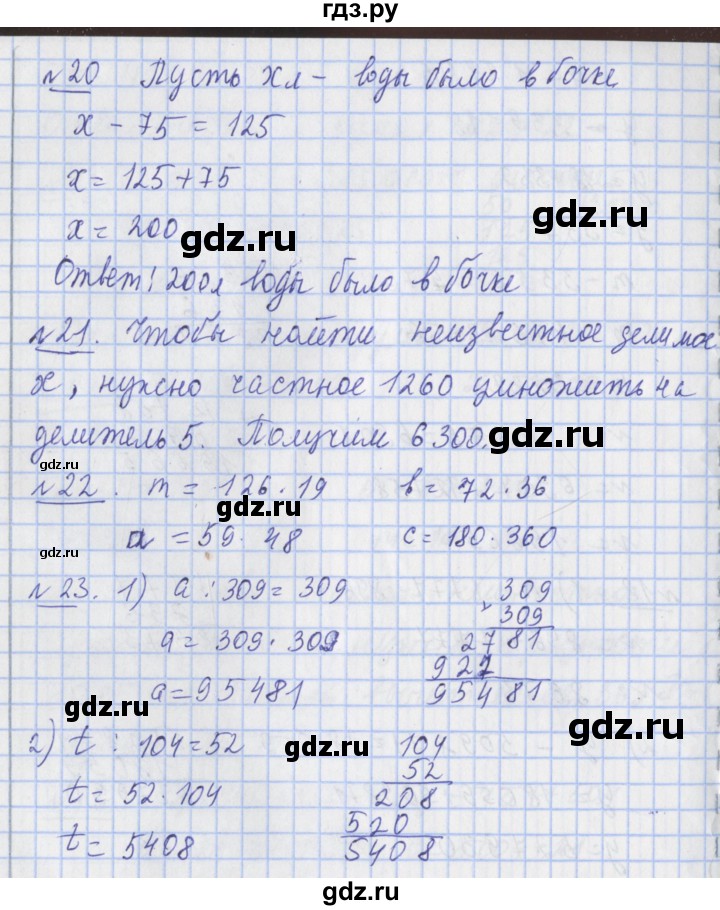 гдз.ру
№20 Пусть x л – воды было в бочке
x – 75 = 125
x = 125 + 75
gdz.ru
x = 200
gdz.ru
Ответ: 200 л воды было в бочке
№21. Чтобы найти неизвестное делимое
x, нужно частное 1260 умножить на
делитель 5. Получим 6300.
gdz.ru
gdz.ru
№22. m = 126 · 19 b = 72 · 36
gdz.ru
a = 59 · 48 c = 180 · 360
gdz.ru
№23. 1) a : 309 = 309
a = 309 · 309
a = 95481
309
× 309
2781
927
95481
gdz.ru
gdz.ru
2) t : 104 = 52
t = 52 · 104
t = 5408
104
52
208
520
5408
gdz.ru
gdz.ru